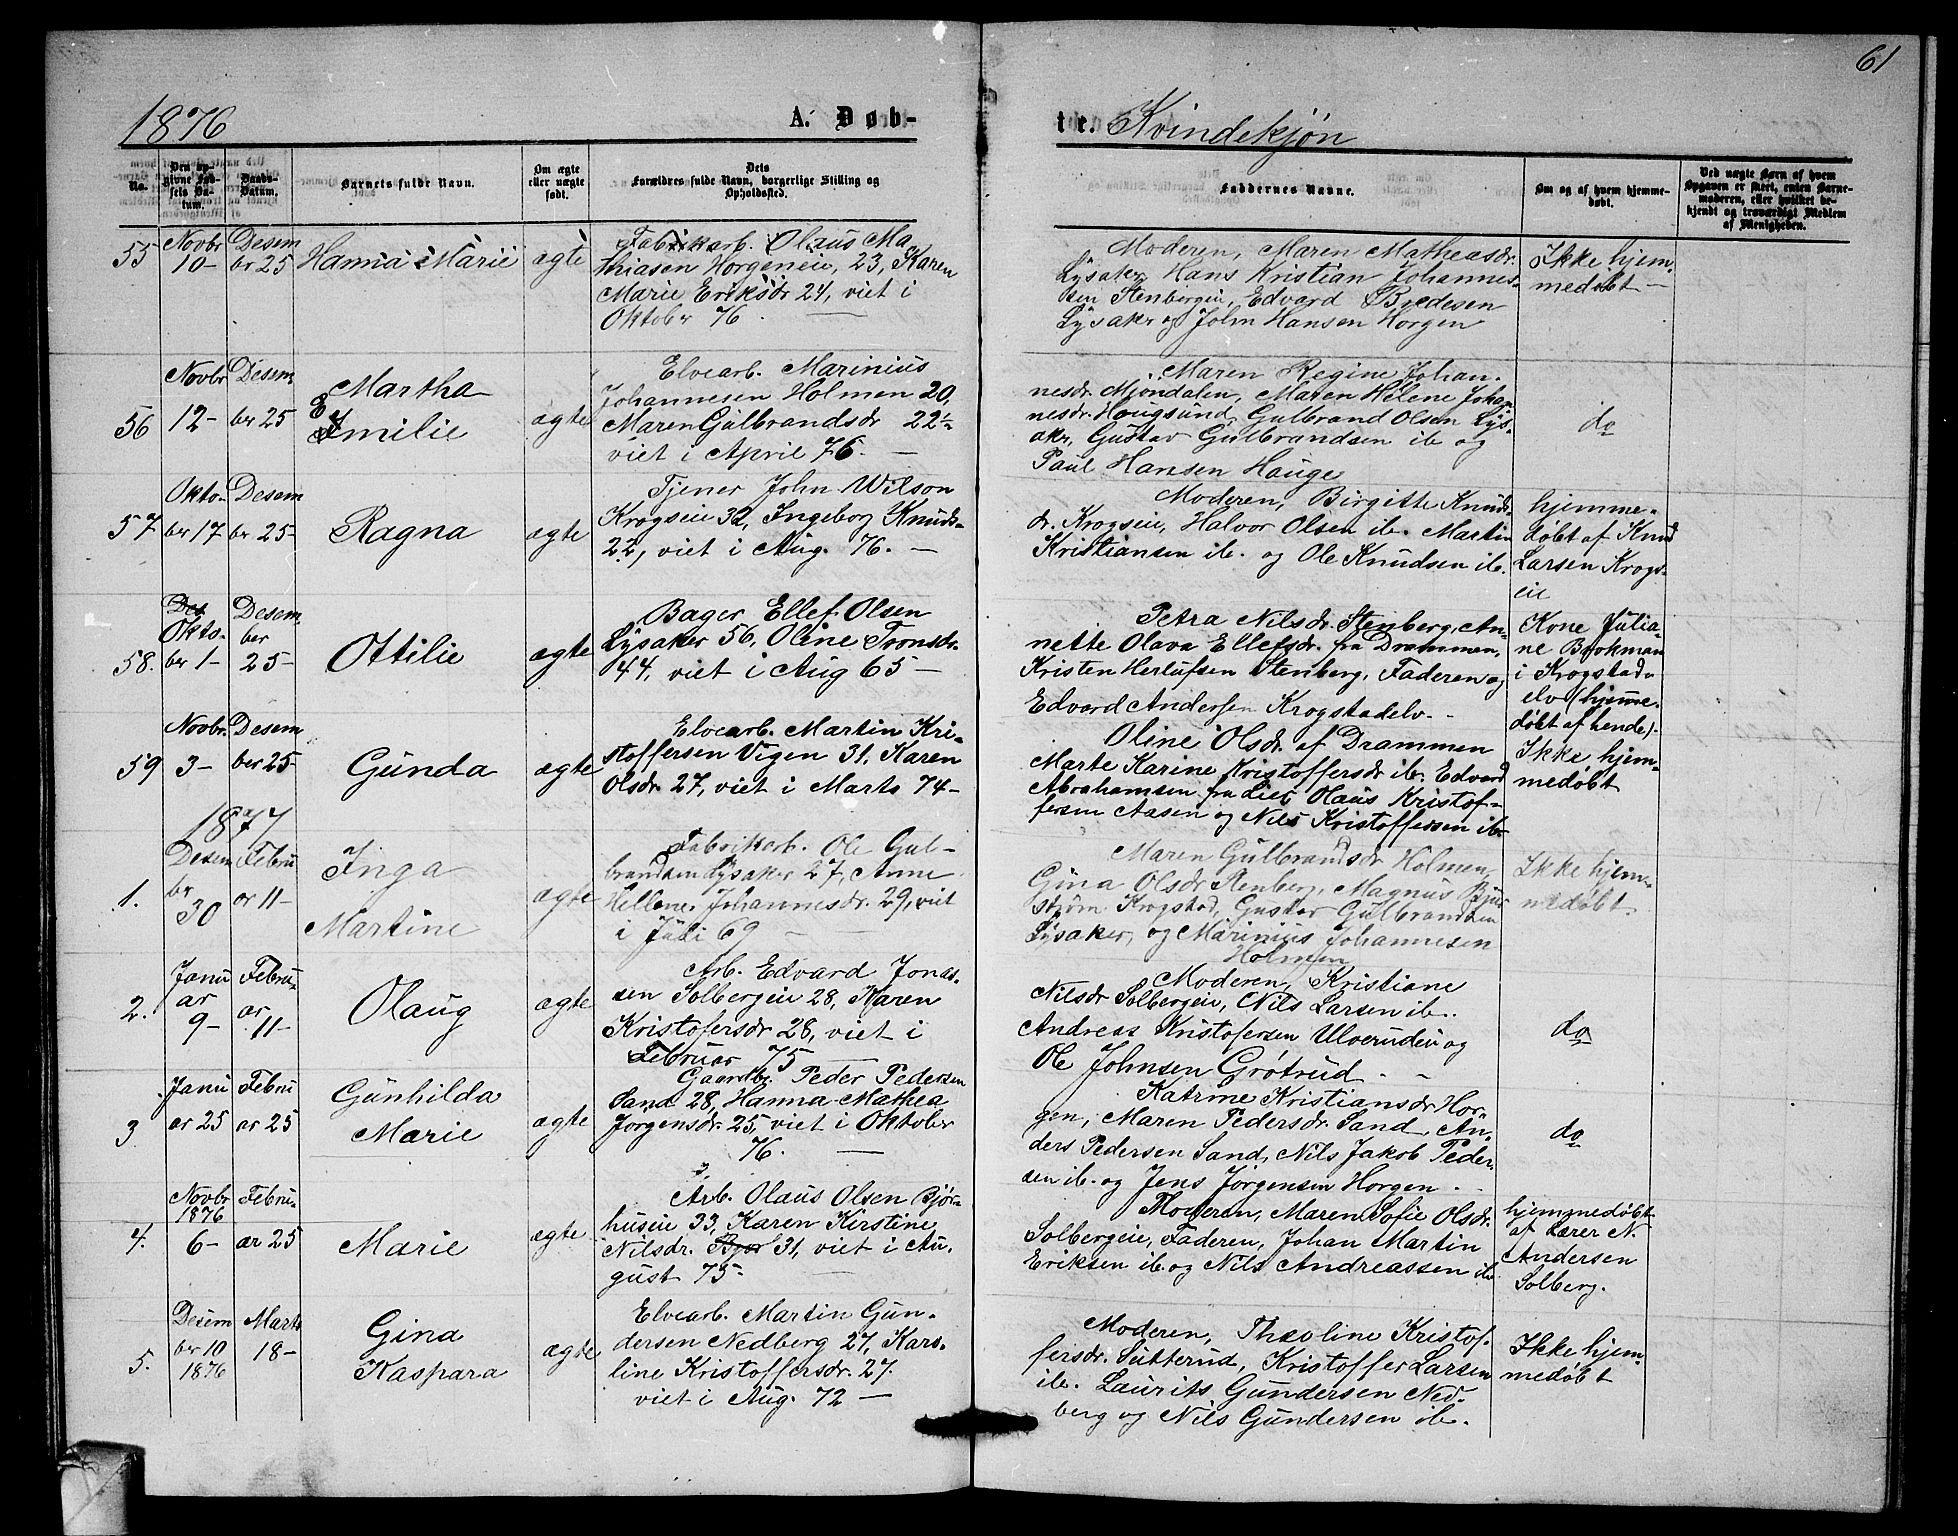 61
1876
A. Døb-
te. Kvindekjøn
No.
Den op-
givne Fød-
sels Da-
tum.
Daabs-
Datum.
Barnets fulde Navn.
Om ægte
eller uægte
født.
Dets
Forældres fulde Navn, borgerlige Stilling og
Opholdssted.
Faddernes Navne.
Om og af hvem hjemme-
døbt.
Ved uægte Børn af hvem
Opgaven er skeet, enten Barne-
moderen, eller hvilket be-
kjendt og troværdigt Medlem
af Menigheden.
55
Novbr
10-
Desem
br 25
Hanna Marie
ægte
Fabrikarb. Olaus Ma
thiasen Horgeneie, 23, Karen
Marie Eriksdr 24, viet i
Oktober 76. —
Moderen, Maren Matheasdr.
Lysaker, Hans Kristian Johannes-
sen Stenbergeie, Edvard Bredesen
Lysakr og John Hansen Horgen
Ikke hjem-
medøbt —
56
Novbr
12-
Desem
ber 25
Martha
Emilie
ægte
Elvearb. Marinius
Johannesen Holmen 20,
Maren Gulbrandsdr 22½
viet i April 76. —
Maren Regine Johan-
nesdr. Mjøndalen, Maren Helene Johan
nesdr. Hougsund, Gulbrand Olsen Lys-
akr, Gustav Gulbrandsen ib og
Paul Hansen Hauge
do
57
Okto-
ber 17
Desem
br 25-
Ragna
ægte
Tjener John Wilson
Krogseie 32, Ingeborg Knuds-
22, viet i Aug. 76. —
Moderen, Birgitte Knuds-
dr. Krogseie, Halvor Olsen ib. Martin
Kristiansen ib. og Ole Knudsen ib.
hjemme-
døbt af Knud
Larsen Krogs-
eie
58.
Des
Okto-
ber 1-
Desem
ber
25-
Ottilie
ægte
Bager Ellef Olsen
Lysaker 56, Oline Tronsdr.
44, viet i Aug 65 —
Petra Nilsdr. Stenberg, An-
nette Olava Ellefsdr. fra Drammen,
Kristen Herlufsen Stenberg, Faderen og
Edvard Andersen Krogstadelv. -
Kone Julia-
ne Brokman
i Krogstad-
elv (hjemme-
døbt af hende).
59
Novbr.
3-
Desem
ber 25-
Gunda
ægte
Elvearb. Martin Kri-
stoffersen Vigen 31, Karen
Olsdr. 27, viet i Marts 74 -
Oline Olsdr. af Drammen
Marte Karine Kristoffersdr ib. Edvard
Abrahamsen fra Lier Olaus Kristof-
fersen Aasen og Nils Kristoffersen ib-
Ikke hjem-
medøbt
1877
1.
Desem
br
30
Febru
ar 11-
Inga
Martine
ægte
Fabrikarb. Ole Gul-
brandsen Lysaker 27, Anne
Hellene Johannesdr. 29, viet
i Juli 69 —
Maren Gulbrandsdr Holmen,
Gina Olsdr Stenberg, Magnus Bjur
strøm Krogstad, Gustav Gulbrandsen
Lysaker, og Marinius Johannesen
Holmen
Ikke hjem-
medøbt.
2.
Janu
ar
9-
Febru-
ar
11-
Olaug
ægte
Arb. Edvard Jonas-
sen Solbergeie 28, Karen
Kristofersdr 28, viet i
Februar 75
Moderen, Kristiane
Nilsdr Solbergeie, Nils Larsen ib..
Andreas Kristofersen Ulverudeie og
Ole Johnsen Grøtrud. -
do
3
Janu
ar 25
Febru
ar 25
Gunhilda
Marie
ægte
Gaardbr. Peder Pedersen
Sand 28, Hanna Mathea
Jørgensdr. 25, viet i Oktober
76. —
Katrine Kristiansdr Hor-
gen, Maren Pedersdr. Sand, An-
ders Pedersen Sand, Nils Jakob Peder-
sen ib. og Jens Jørgensen Horgen -
do
4.
Novbr
1876
6-
Febru
ar 25
Marie
ægte
Arb. Olaus Olsen Bjør-
huseie 33, Karen Kirstine
Nilsdr. Bjør 31, viet i Au-
gust 75-
Moderen, Maren Sofie Olsdr.
Solbergeie, Faderen, Johan Martin
Eriksen ib. og Nils Andreassen ib.
hjemmedøbt
af Lærer N.
Andersen
Solberg.
5.
Desem
ber 10
1876
Marts
18-
Gina
Kaspara
ægte
Elvearb. Martin Gun-
dersen Nedberg 27, Kars-
line Kristoffersdr. 27.
viet i Aug. 72 —
Moderen, Theoline Kristof-
fersdr. Sutterud, Kristoffer Larsen
ib. Laurits Gundersen Ned-
berg og Nils Gundersen ib.
Ikke hjem-
medøbt